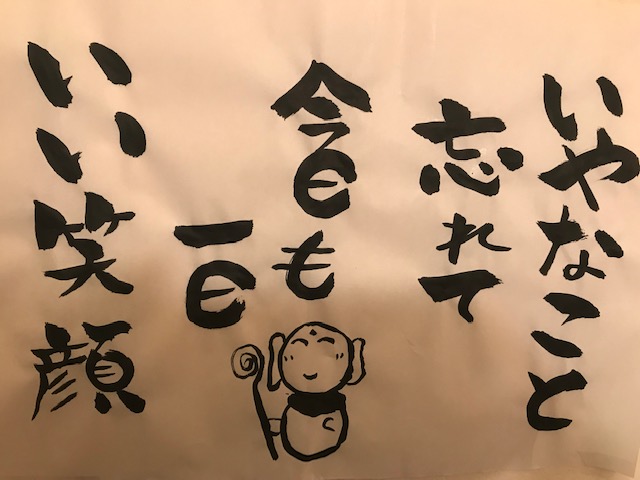 いやなこと
忘れて
今日も
一日
いい笑顔